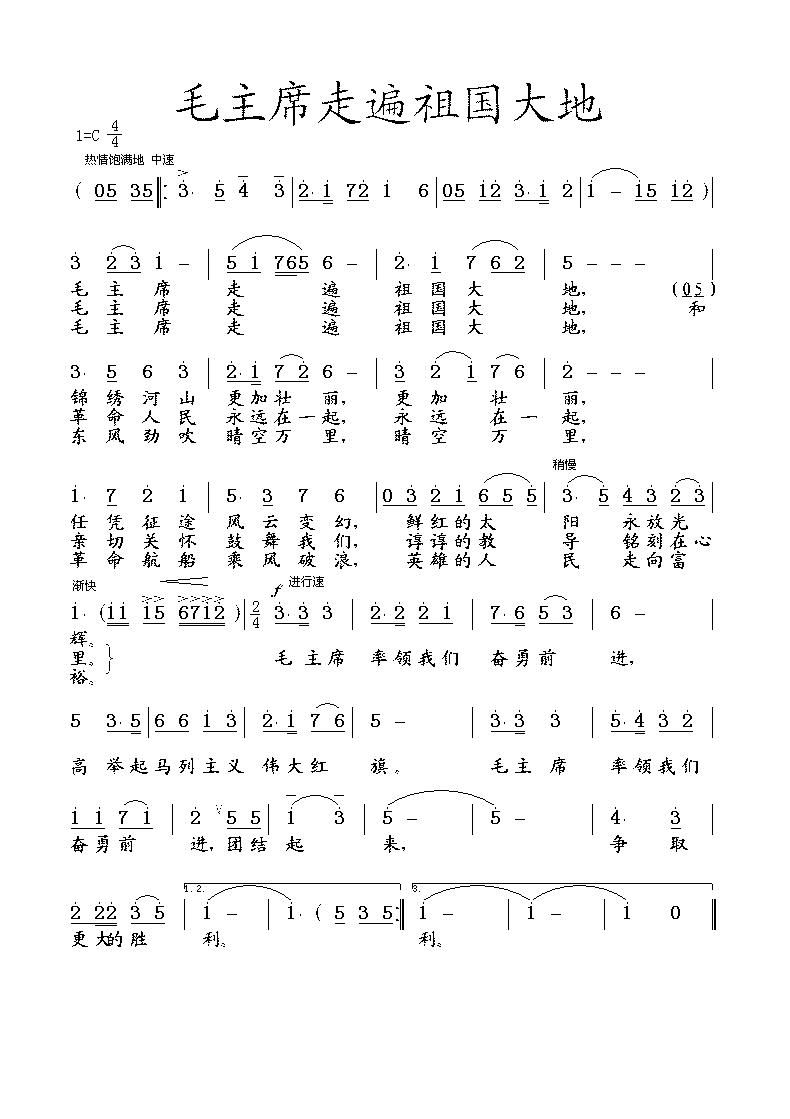 毛主席走遍祖国大地
1=C 4/4
热情饱满地 中速
( 05 35 ‖: 3· 5 4 3 | 2·1 72 1 6 | 05 12 3·1 2 | 1 - 15 12 ) |
3 2 3 1 - | 5 1 765 6 - | 2· 1 7 6 2 | 5 - - - |
毛 主 席 走 遍 祖 国 大 地, (05)
毛 主 席 走 遍 祖 国 大 地, 和
毛 主 席 走 遍 祖 国 大 地,
3· 5 6 3 | 2·1 7 2 6 - | 3 2 1 7 6 | 2 - - - |
锦 绣 河 山 更加壮 丽, 更 加 壮 丽,
革 命 人 民 永远在一起, 永 远 在 一 起,
东 风 劲 吹 晴空万 里, 晴 空 万 里,
稍慢
1· 7 2 1 | 5· 3 7 6 | 0 3 2 1 6 5 5 | 3· 5 4 3 2 3 |
任 凭 征 途 风 云 变 幻, 鲜红的太 阳 永放光
亲 切 关 怀 鼓 舞 我 们, 谆谆的教 导 铭刻在心
革 命 航 船 乘 风 破 浪, 英雄的人 民 走向富
渐快 f 进行速
1· (11 15 6712) | 2/4 3·3 3 | 2·2 2 1 | 7·6 5 3 | 6 - |
辉。
里。} 毛 主席 率领我们 奋勇前 进,
裕。
5 3·5 | 6 6 1 3 | 2·1 7 6 | 5 - | 3·3 3 | 5·4 3 2 |
高 举起马列主义 伟大红 旗。 毛主 席 率领我们
1 1 7 1 | 2 ∨ 5 5 | 1 3 | 5 - | 5 - | 4· 3 |
奋勇前 进,团结 起 来, 争 取
1.2. 3.
2 22 3 5 | 1 - | 1· ( 5 3 5 :‖ 1 - | 1 - | 1 0 ‖
更大的胜 利。 利。